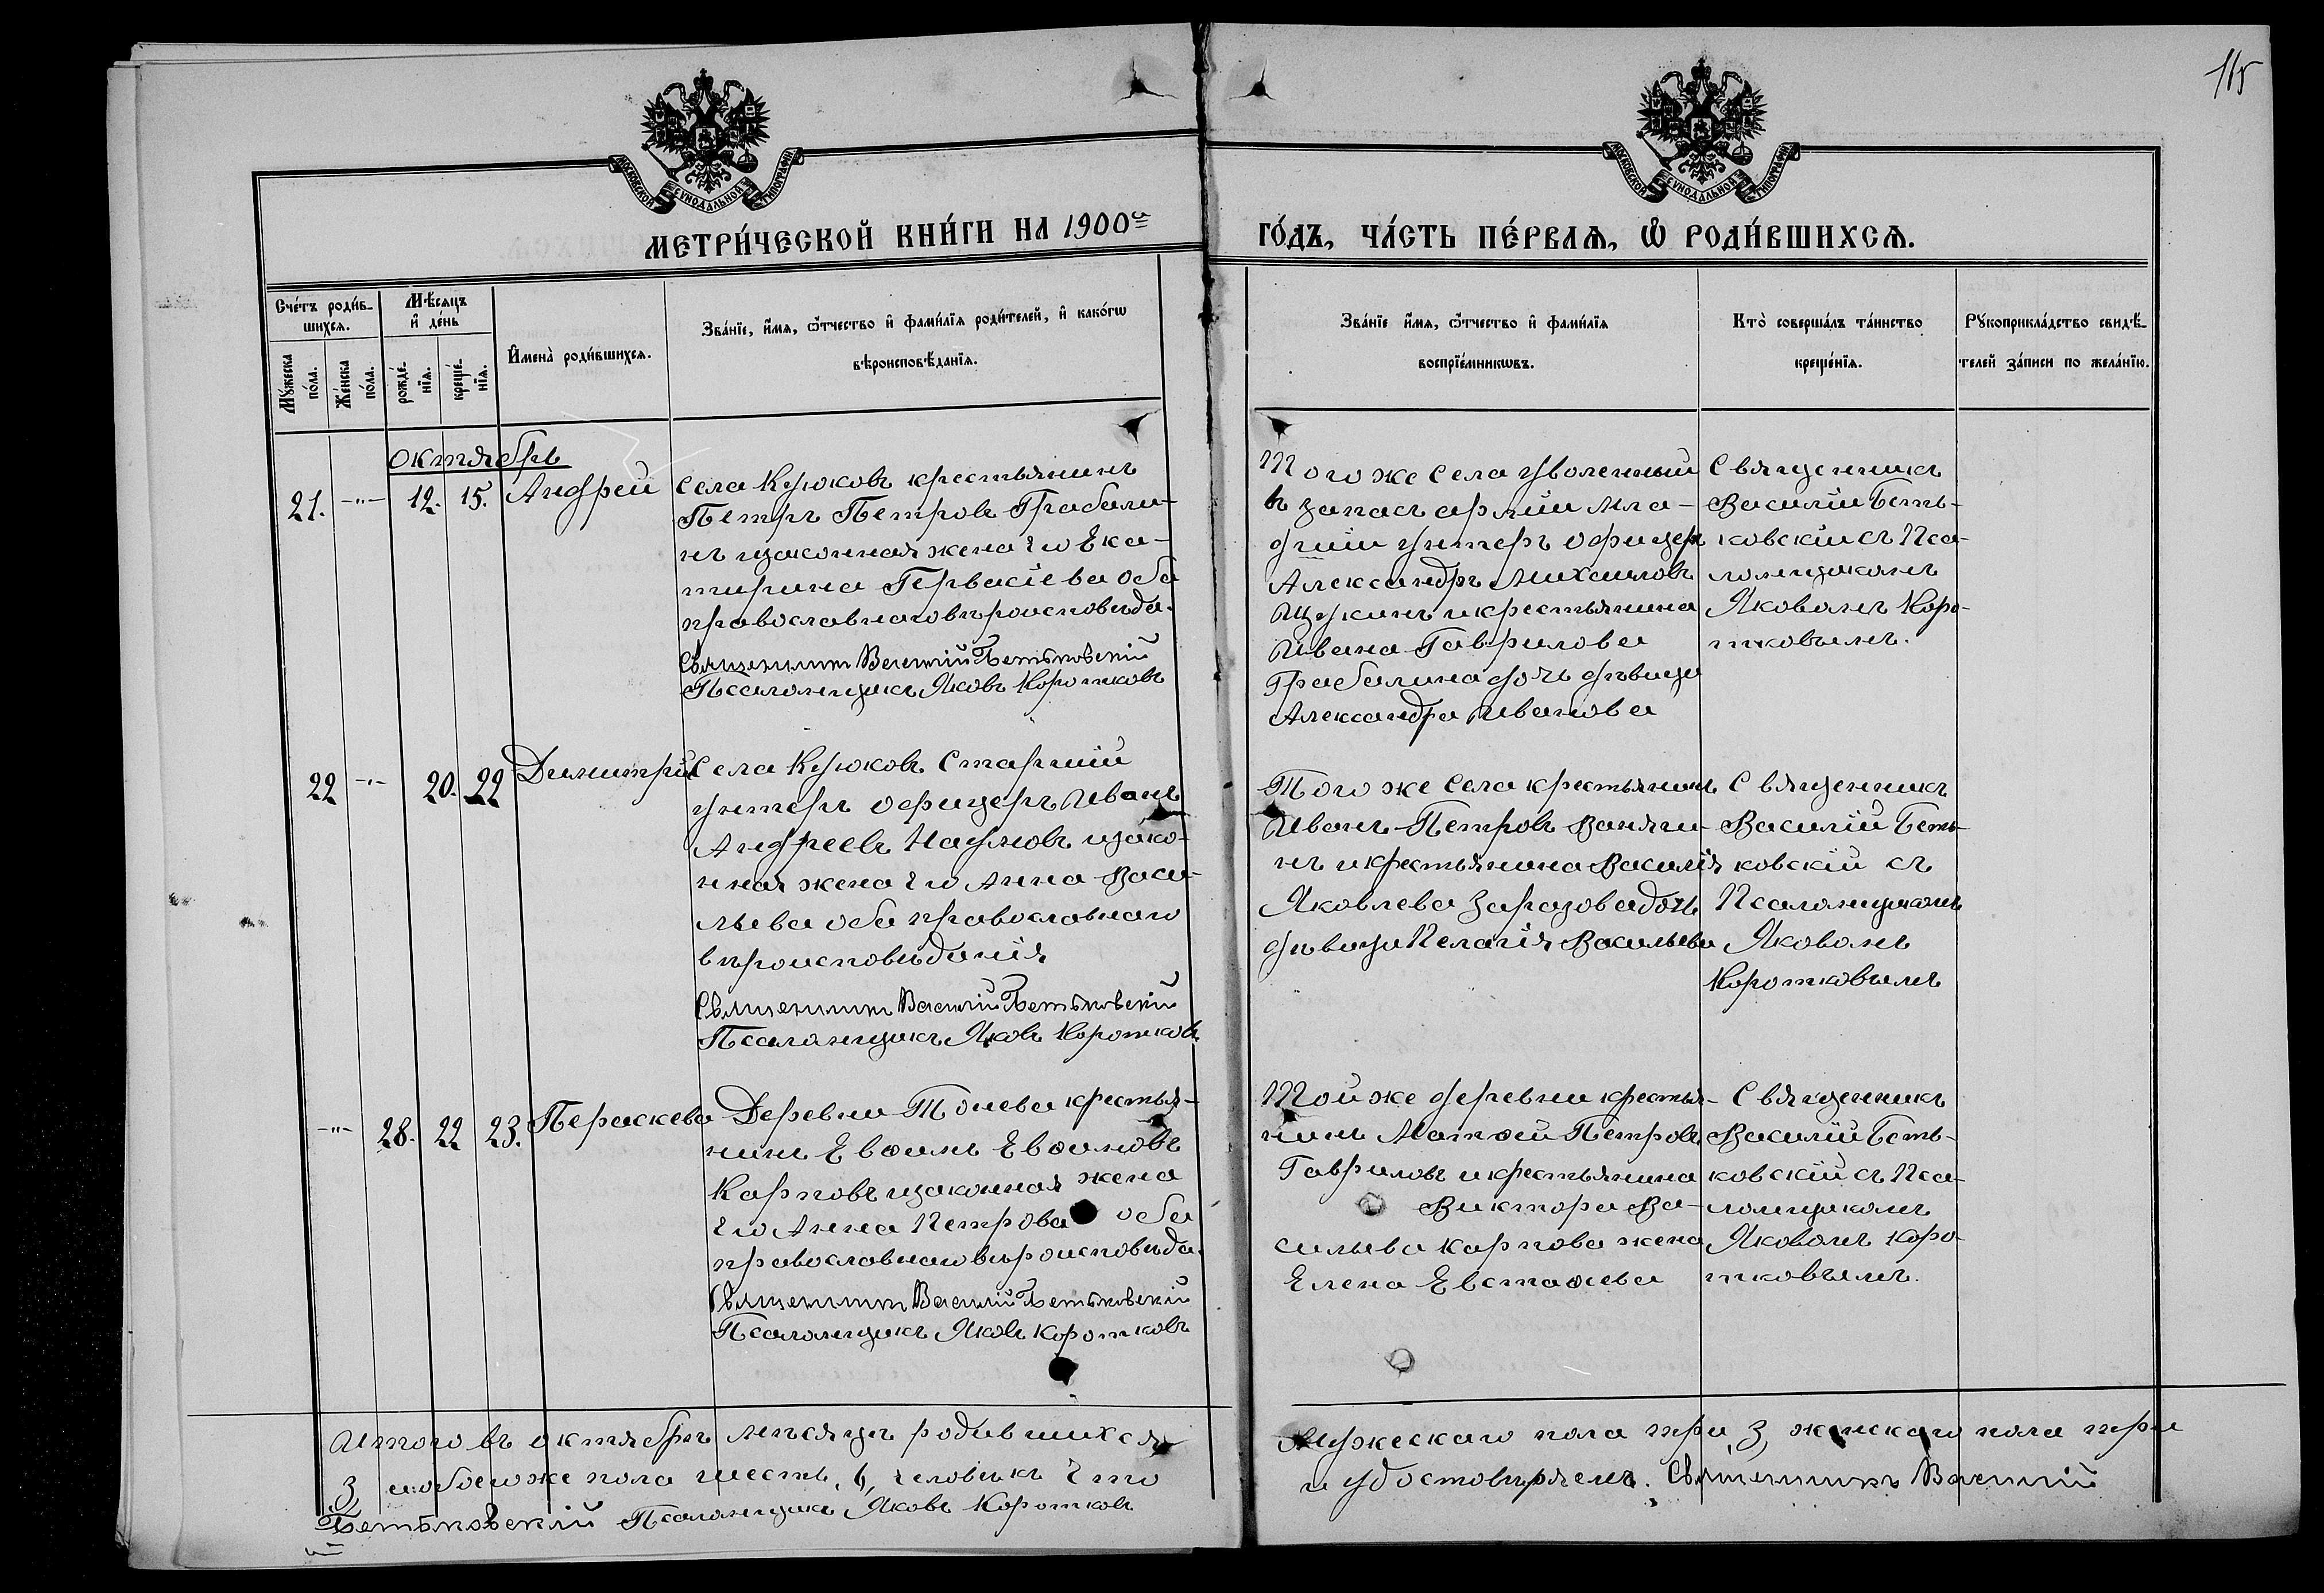 115
МОСКОВСКОЙ СѴНОДАЛЬНОЙ ТИПОГРАФІИ
МОСКОВСКОЙ СѴНОДАЛЬНОЙ ТИПОГРАФІИ
МЕТРИ́ЧЕСКОЙ КНИ́ГИ НА 1900й
ГО́ДЪ, ЧА́СТЬ ПЕ́РВАѦ, Ѡ РОДИ́ВШИХСѦ.
Сче́тъ роди́в-
шихсѧ.
Мꙋ́жеска по́ла.
Же́нска по́ла.
Мѣ́сѧцъ
и҆ де́нь
рожде́-нїѧ.
креще́-нїѧ.
И҆мена̀ роди́вшихсѧ.
Зва́нїе, и҆́мѧ, ѻ҆́тчество и҆ фами́лїѧ роди́телей, и҆ како́гѡ
вѣроисповѣ́данїѧ.
Зва́нїе и҆́мѧ, ѻ҆́тчество и҆ фами́лїѧ
воспрїе́мникѡвъ.
Кто̀ соверша́лъ та́инство
креще́нїѧ.
Рꙋкоприкла́дство свидѣ́-
телей за́писи по жела́нїю.
октябрь
21. -"- 12. 15. Андрей
Села Крюковъ крестьянинъ
Петръ Петровъ Грабали-
нъ изаконная жена его Ека-
терина Гервасіева оба
православнаго вѣроисповѣда.
Священникъ Василій Бетьковскій
Псаломщикъ Яковъ Коротковъ
Того же села уволенный
въ запасъ арміи мла-
дшій унтеръ офицеръ
Александръ Михаиловъ
Щукинъ и крестьянина
Ивана Гаврилова
Грабалина дочь дѣвица
Александра Иванова
Священникъ
Василій Беть-
ковскій съ Пса-
ломщикомъ
Яковомъ Коро-
тковымъ.
22 -"- 20. 22 Димитрій
Села Крюковъ Старшій
унтеръ офицеръ Иванъ
Андреевъ Наумовъ изако-
нная жена его Анна Васи-
льева оба православнаго
вѣроисповѣданія
Священникъ Василій Бетьковскій
Псаломщикъ Яковъ Коротковъ
Того же Села крестьянинъ
Иванъ Петровъ Ваняги-
нъ и крестьянина Василія
Яковлева Заразова дочь
дѣвица Пелагія Васильева
Священникъ
Василій Беть-
ковскій съ
Псаломщикомъ
Яковомъ
Коротковымъ
-"- 28. 22 23. Пераскева
Деревни Тонева крестья-
нинъ Евѳимъ Евѳимовъ
Карповъ изаконная жена
его Анна Петрова оба
православнаго вѣроисповѣда.
Священникъ Василій Бетьковскій
Псаломщикъ Яковъ Коротковъ
Той же деревни крестья-
нинъ Матѳей Петровъ
Гавриловъ и крестьянина
Виктора Ва-
сильева Карпова жена
Елена Евстаѳіева
Священникъ
Василій Беть-
ковскій съ Пса-
ломщикомъ
Яковомъ Коро-
тковымъ.
Итого въ октябрѣ мѣсяцѣ родившихся
Мужескаго пола три 3, женскаго пола три
3, и обоего же пола шесть, 6, человѣкъ что
и удостовѣряемъ. Священникъ Василій
Бетьковскій Псаломщикъ Яковъ Коротковъ